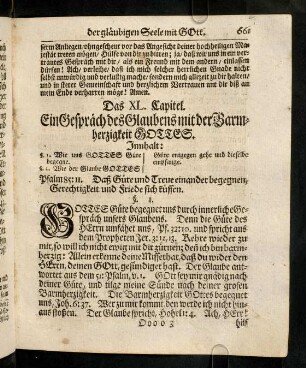 der gläubigen Seele mit GOtt. 661
serm Anliegen/ ohngescheut vor das Angesichte deiner hochheiligen Ma-
jestät treten mögen/ Hülfe von dir zu bitten; ja/ daß wir uns in ein ver-
trautes Gespräch mit dir/ als ein Freund mit dem andern/ einlassen
dürfen! Ach/ verleihe/ daß ich mich solcher herrlichen Gnade nicht
selbst unwürdig und verlustig mache/ sondern mich allezeit zu dir halten/
und in steter Gemeinschaft und herzlichem Vertrauen mit dir biß an
mein Ende verharren möge! Amen.
Das XL. Capitel.
Ein Gespräch des Glaubens mit der Barm-
herzigkeit GOTTES.
Innhalt:
§. 1. Wie uns GOTTES Güte
begegne.
§. 2. Wie der Glaube GOTTES
Güte entgegen gehe und dieselbe
umfange.
Psalm 85: 11. Daß Güte und Treue einander begegnen,
Gerechtigkeit und Friede sich küssen.
§. 1.
GOTTES Güte begegnet uns durch innerliche Ge-
spräch unsers Glaubens. Denn die Güte des
HErrn umfähet uns, Ps. 32: 10. und spricht aus
dem Propheten Jer. 3: 12, 13. Kehre wieder zu
mir, so will ich nicht ewig mit dir zürnen; deñ ich bin barm-
herzig: Allein erkenne deine Missethat, daß du wider den
HErrn, deinen GOtt, gesündiget hast. Der Glaube ant-
wortet aus dem 51 Psalm, v. 1. GOtt sey mir gnädig nach
deiner Güte, und tilge meine Sünde nach deiner grossen
Barmherzigkeit. Die Barmherzigkeit GOttes begegnet
uns, Joh. 6: 37. Wer zu mir kommt, den werde ich nicht hin-
aus stoßen. Der Glaube spricht, Hohel. 1: 4. Ach, HErr!
Oooo 3